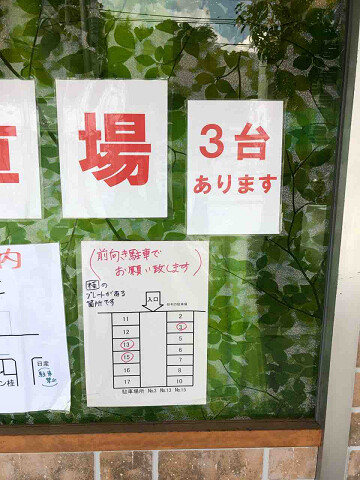 場
3台
あります
内
(前向き駐車で
お願い致します)
桂の
プレートがある
箇所です
入口
11
12
⑬
⑮
16
17
2
③
5
6
7
8
10
駐車場所 No.3 No.13 No.15
日産
駐車
ン桂